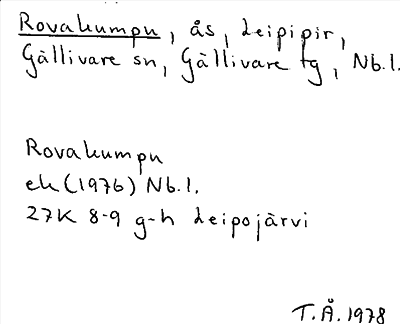 Rovakumpu, ås, Leipipir,
Gällivare sn, Gällivare tg, Nb.l.
Rovakumpu
ek (1976) Nb.l.
27K 8-9 g-h Leipojärvi
T.Å. 1978